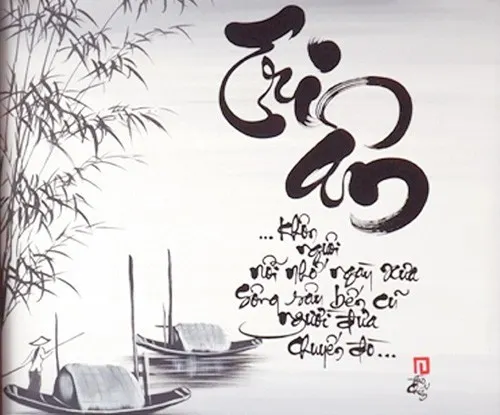 Tri
ân
... Khôn
nguôi
nỗi nhớ ngày xưa
Sông sâu bến cũ
người đưa
chuyến đò...